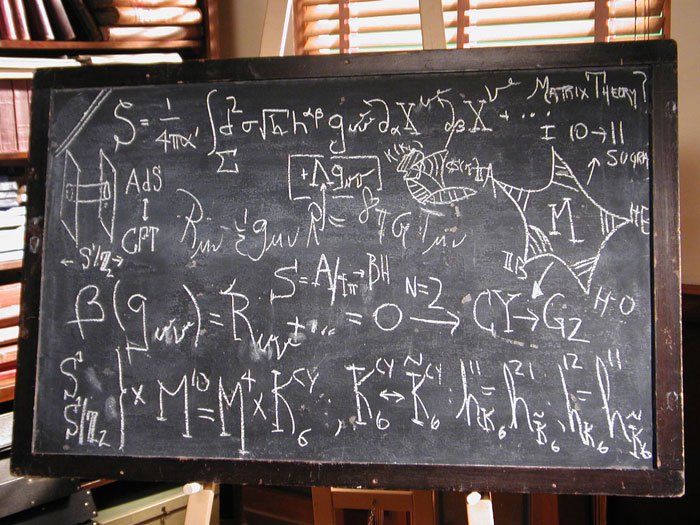 S = 1/4πα' ∫_Σ d²σ √h h^{αβ} g_{μν} ∂_α X^μ ∂_β X^ν + ...
MATRIX THEORY?
I 10→11
SUGRA
AdS
↕
CFT
← S¹/Z₂ →
+Λg_{μν}
R_{μν} - ½ g_{μν} R = 8πG T_{μν}
M
HE
IIB
H-O
S = A/4π → BH
N=2
β(g_{μν}) = R_{μν} + ... = 0 → CY → G₂
S¹
S¹/Z₂
} × M¹⁰ = M⁴ × K₆^{CY} , K₆^{CY} ↔ K̃₆^{CY} : h^{11}_{K₆} = h^{21}_{K̃₆} ; h^{12}_{K₆} = h^{11}_{K̃₆}